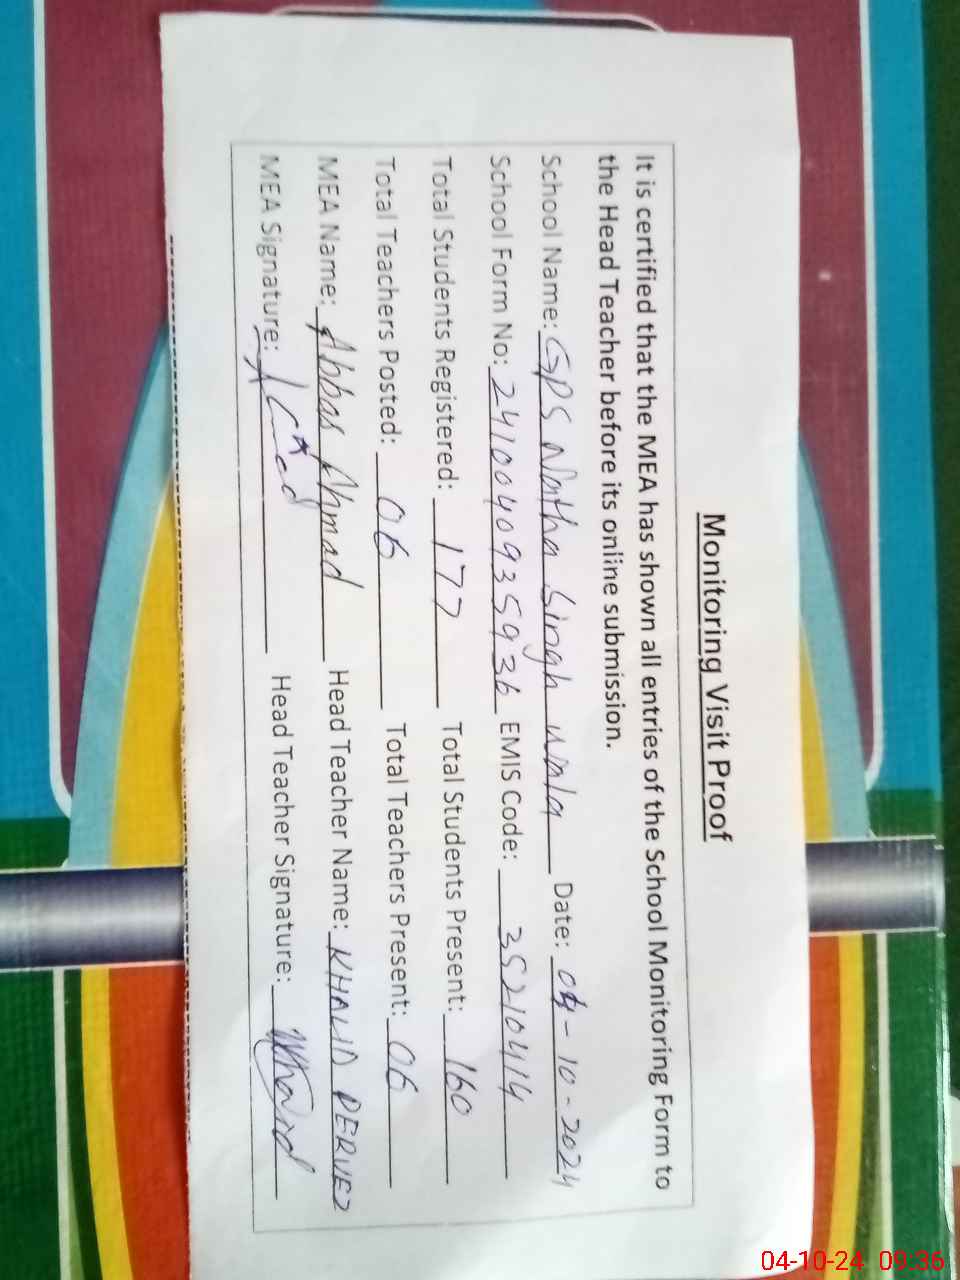 Monitoring Visit Proof
It is certified that the MEA has shown all entries of the School Monitoring Form to
the Head Teacher before its online submission.
School Name: GPS Natha Singh wala Date: 04-10-2024
School Form No: 2410040935936 EMIS Code: 35210414
Total Students Registered: 177 Total Students Present: 160
Total Teachers Posted: 06 Total Teachers Present: 06
MEA Name: Abbas Ahmad Head Teacher Name: KHALID PERVEZ
MEA Signature: Head Teacher Signature:
04-10-24 09:36